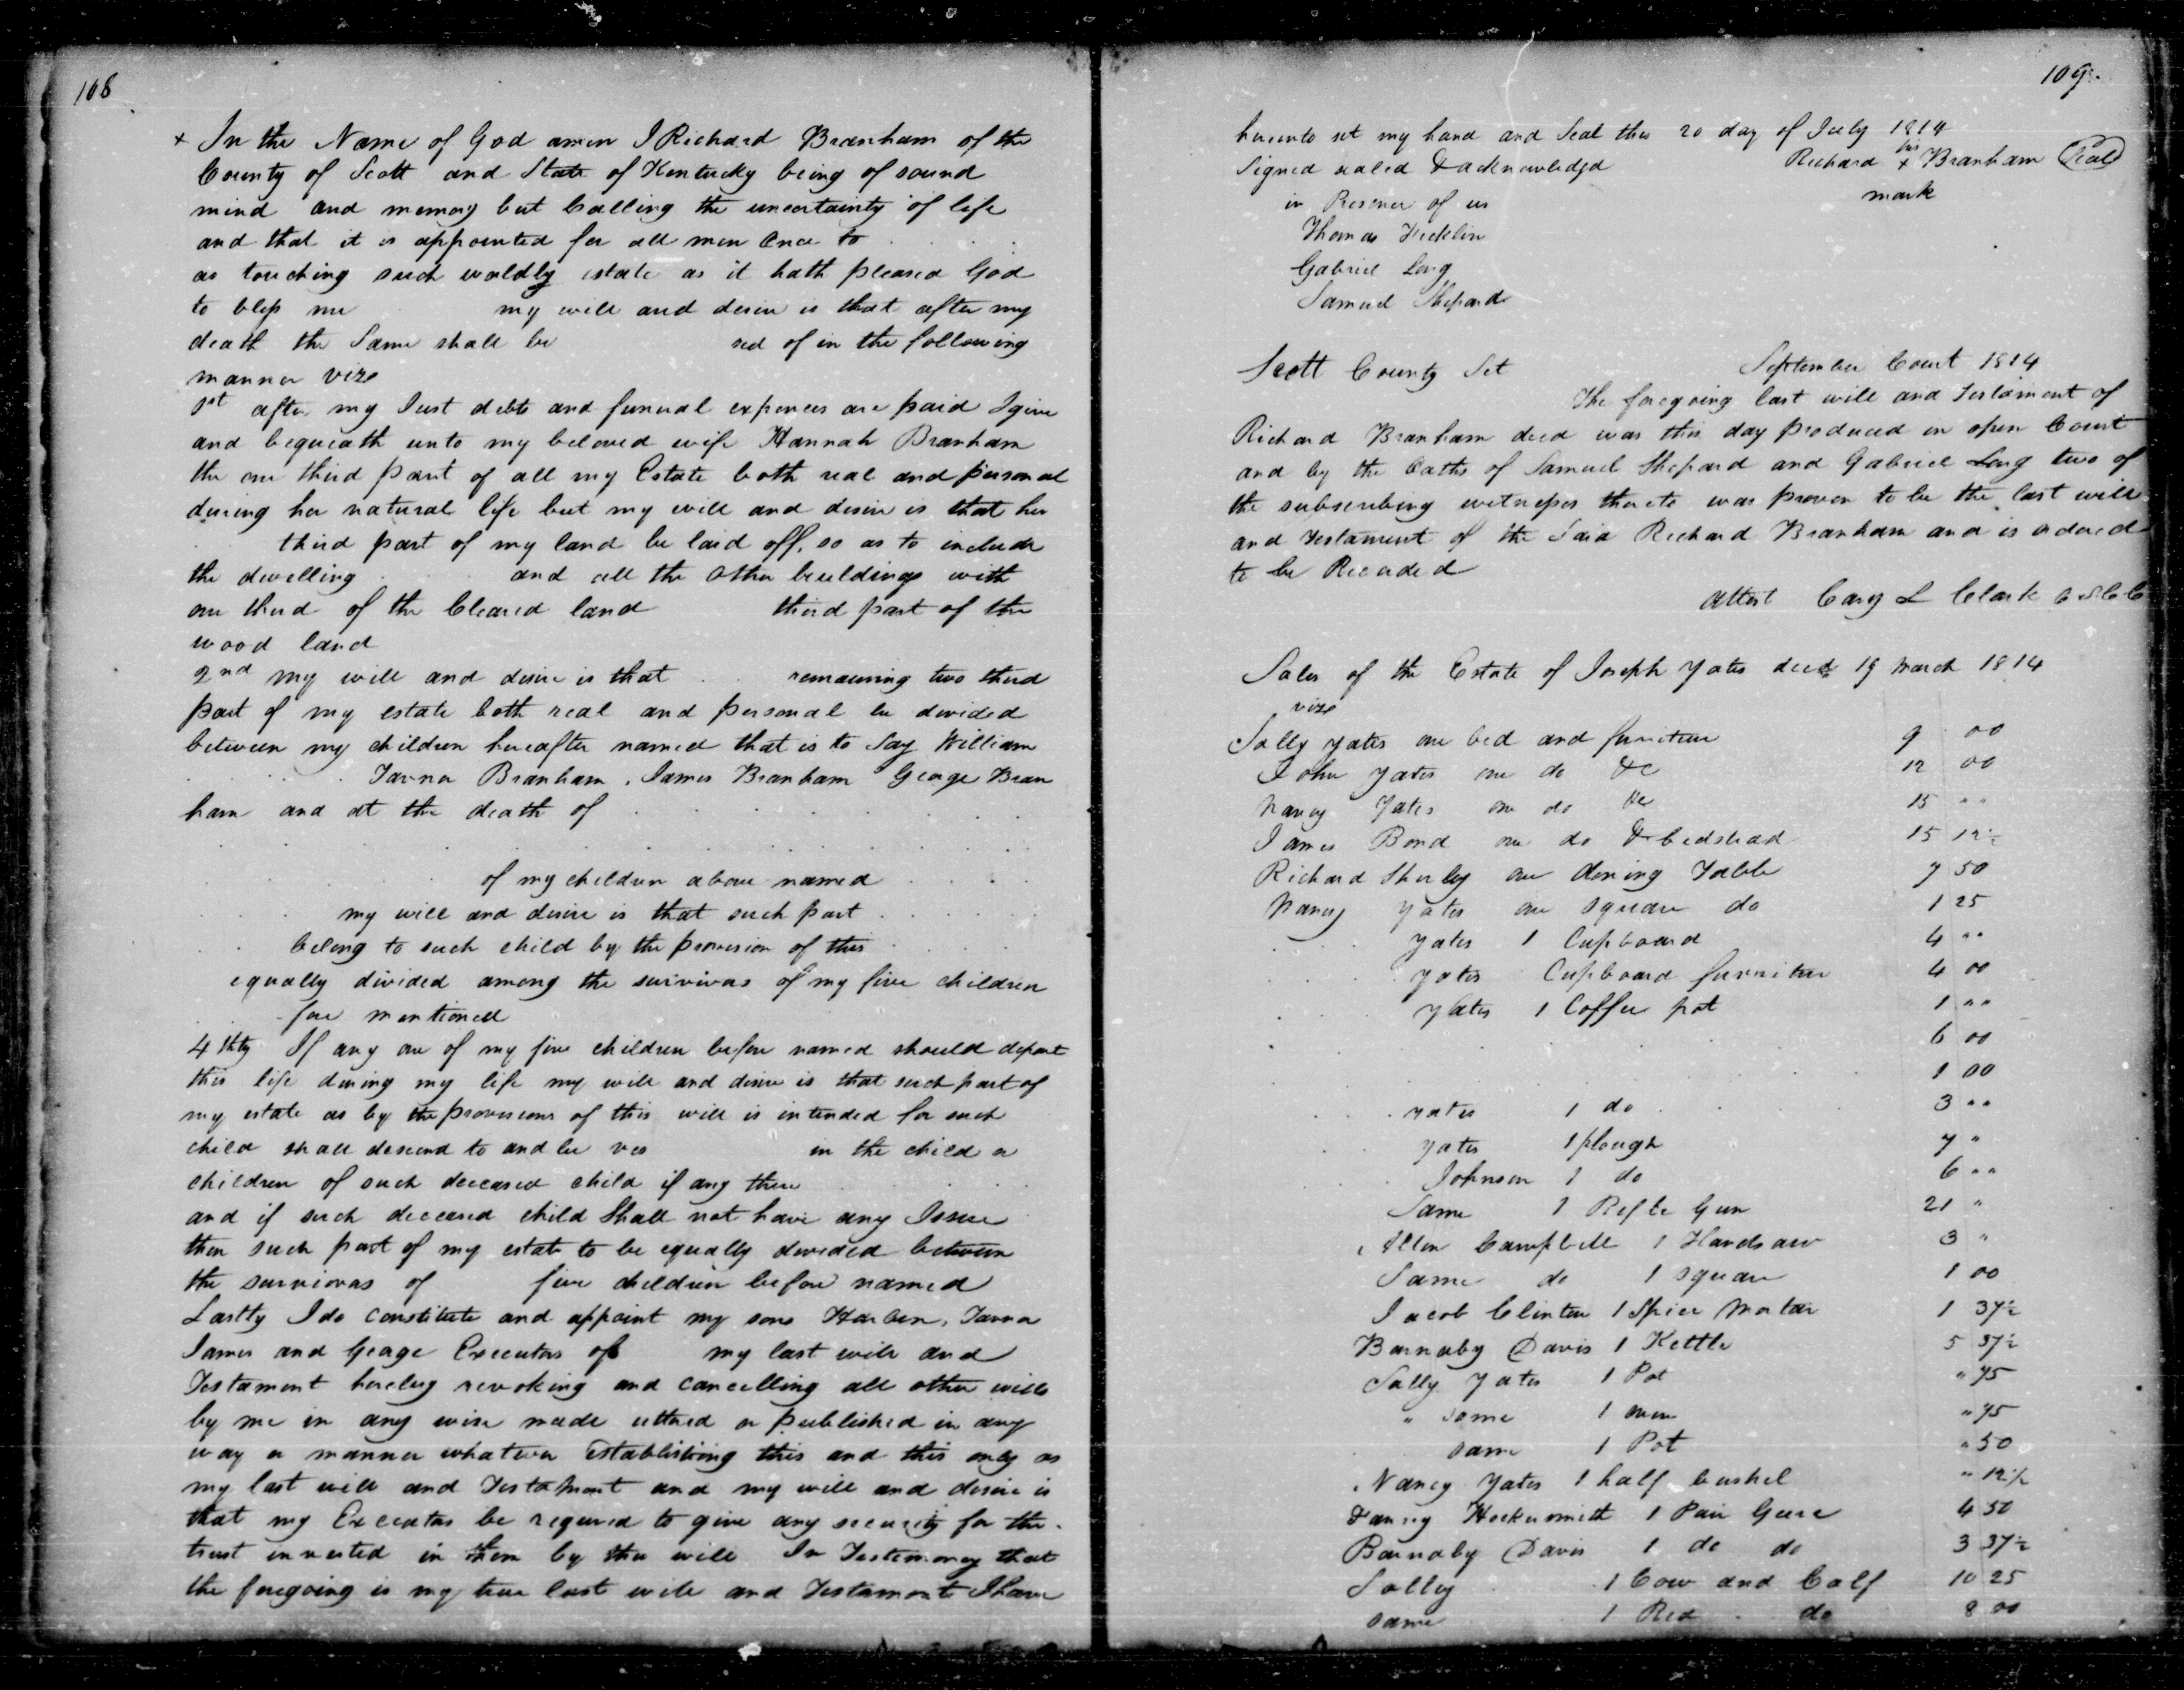 108
+ In the Name of God amen I Richard Branham of the
County of Scott and State of Kentucky being of sound
mind and memory but Calling the uncertainty of life
and that it is appointed for all men Once to
as touching such worldly estate as it hath pleased God
to bless me my will and desire is that after my
death the Same shall be sed of in the following
manner vizs
1st after my Just debts and funeral expences are paid I give
and bequeath unto my beloved wife Hannah Branham
the one third part of all my Estate both real and personal
during her natural life but my will and desire is that her
third part of my land be laid off, so as to include
the dwelling and all the Other buildings with
one third of the Cleared land third part of the
wood land
2nd my will and desire is that remaining two third
part of my estate both real and personal be divided
between my children hereafter named that is to Say William
Tavner Branham, James Branham George Bran
ham and at the death of
of my children above named
my will and desire is that such part
belong to such child by the provision of this
equally divided among the survivors of my five children
fore mentioned
4thly If any one of my five children before named should depart
this life during my life my will and desire is that such part of
my estate as by the provisions of this will is intended for such
child shall descend to and be ves in the child or
children of such deceased child if any there
and if such deceased child Shall not have any Issue
then such part of my estate to be equally devided between
the survivors of five children before named
Lastly I do constitute and appoint my sons Harben, Tavnor
James and George Executors of my last will and
Testament hereby revoking and cancelling all other wills
by me in any wise made uttred or published in any
way or manner whatever Establishing this and this only as
my last will and Testament and my will and desire is
that my Executors be required to give any security for the
trust invested in them by this will In Testimony that
the foregoing is my true last will and Testament I have
109.
hereunto set my hand and Seal this 20 day of July 1814
Signed sealed & acknowledged Richard his + Branham Seal
in Presence of us mark
Thomas Ficklin
Gabriel Long
Samuel Shepard
Scott County Sct September Court 1814
The foregoing last will and Testament of
Richard Branham decd was this day produced in open Court
and by the Oaths of Samuel Shepard and Gabriel Long two of
the subscribing witnesses thereto was proven to be the last will
and Testament of the Said Richard Branham and is ordered
to be Recorded
Attest Cary L Clark C S C C
Sales of the Estate of Joseph Yates decd 19 March 1814
vizs
Sally Yates one bed and furniture 9 00
John Yates one do &c 12 00
Nancy Yates one do &c 15 " "
James Bond one do & bedstead 15 12½
Richard Shirley one dining Table 7 50
Nancy Yates one square do 1 25
Yates 1 Cupboard 4 " "
Yates Cupboard furniture 4 00
Yates 1 Coffee pot 1 " "
6 00
1 00
Yates 1 do 3 " "
Yates 1 plough 7 "
Johnson 1 do 6 " "
Same 1 Rifle Gun 21 "
Allen Campbell 1 Handsaw 3 "
Same do 1 square 1 00
Jacob Clinton 1 Spice Mortar 1 37½
Barnaby Davis 1 Kettle 5 37½
Sally Yates 1 Pot " 75
" same 1 oven " 75
same 1 Pot " 50
Nancy Yates 1 half bushel " 12½
1 Pair Geere 4 50
Barnaby Davis 1 do do 3 37½
Salley 1 Cow and Calf 10 25
same 1 Red do 8 00